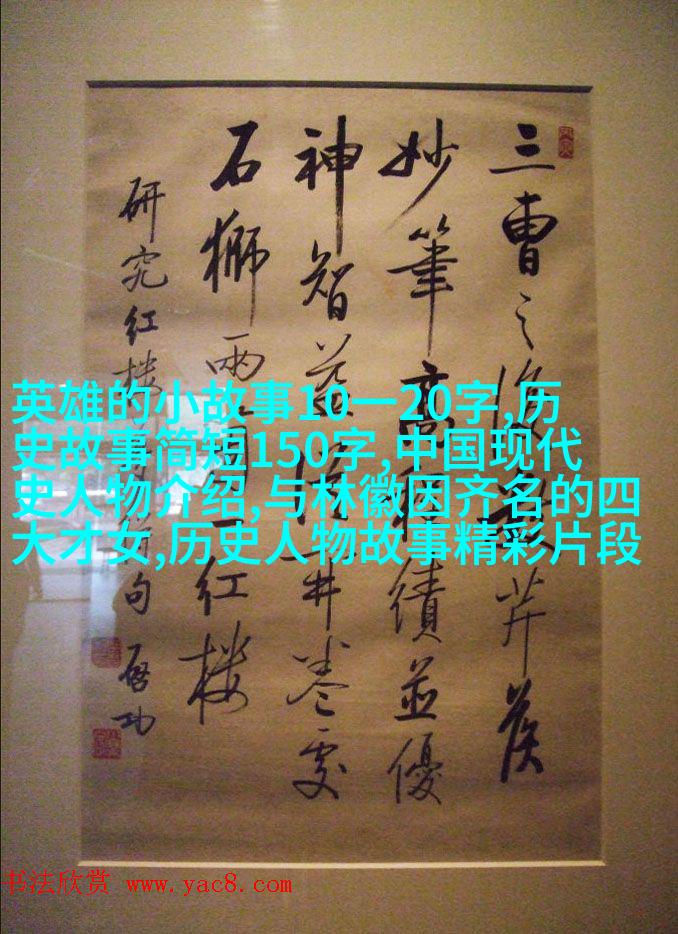 三曹之後芹侯
妙筆高程績並優
神智益從開卷處
石獅兩個一红楼
研究红楼句 启功
英雄的小故事10一20字,历
史故事简短150字,中国现代
史人物介绍,与林徽因齐名的四
大才女,历史人物故事精彩片段
书法欣赏 www.yac8.com